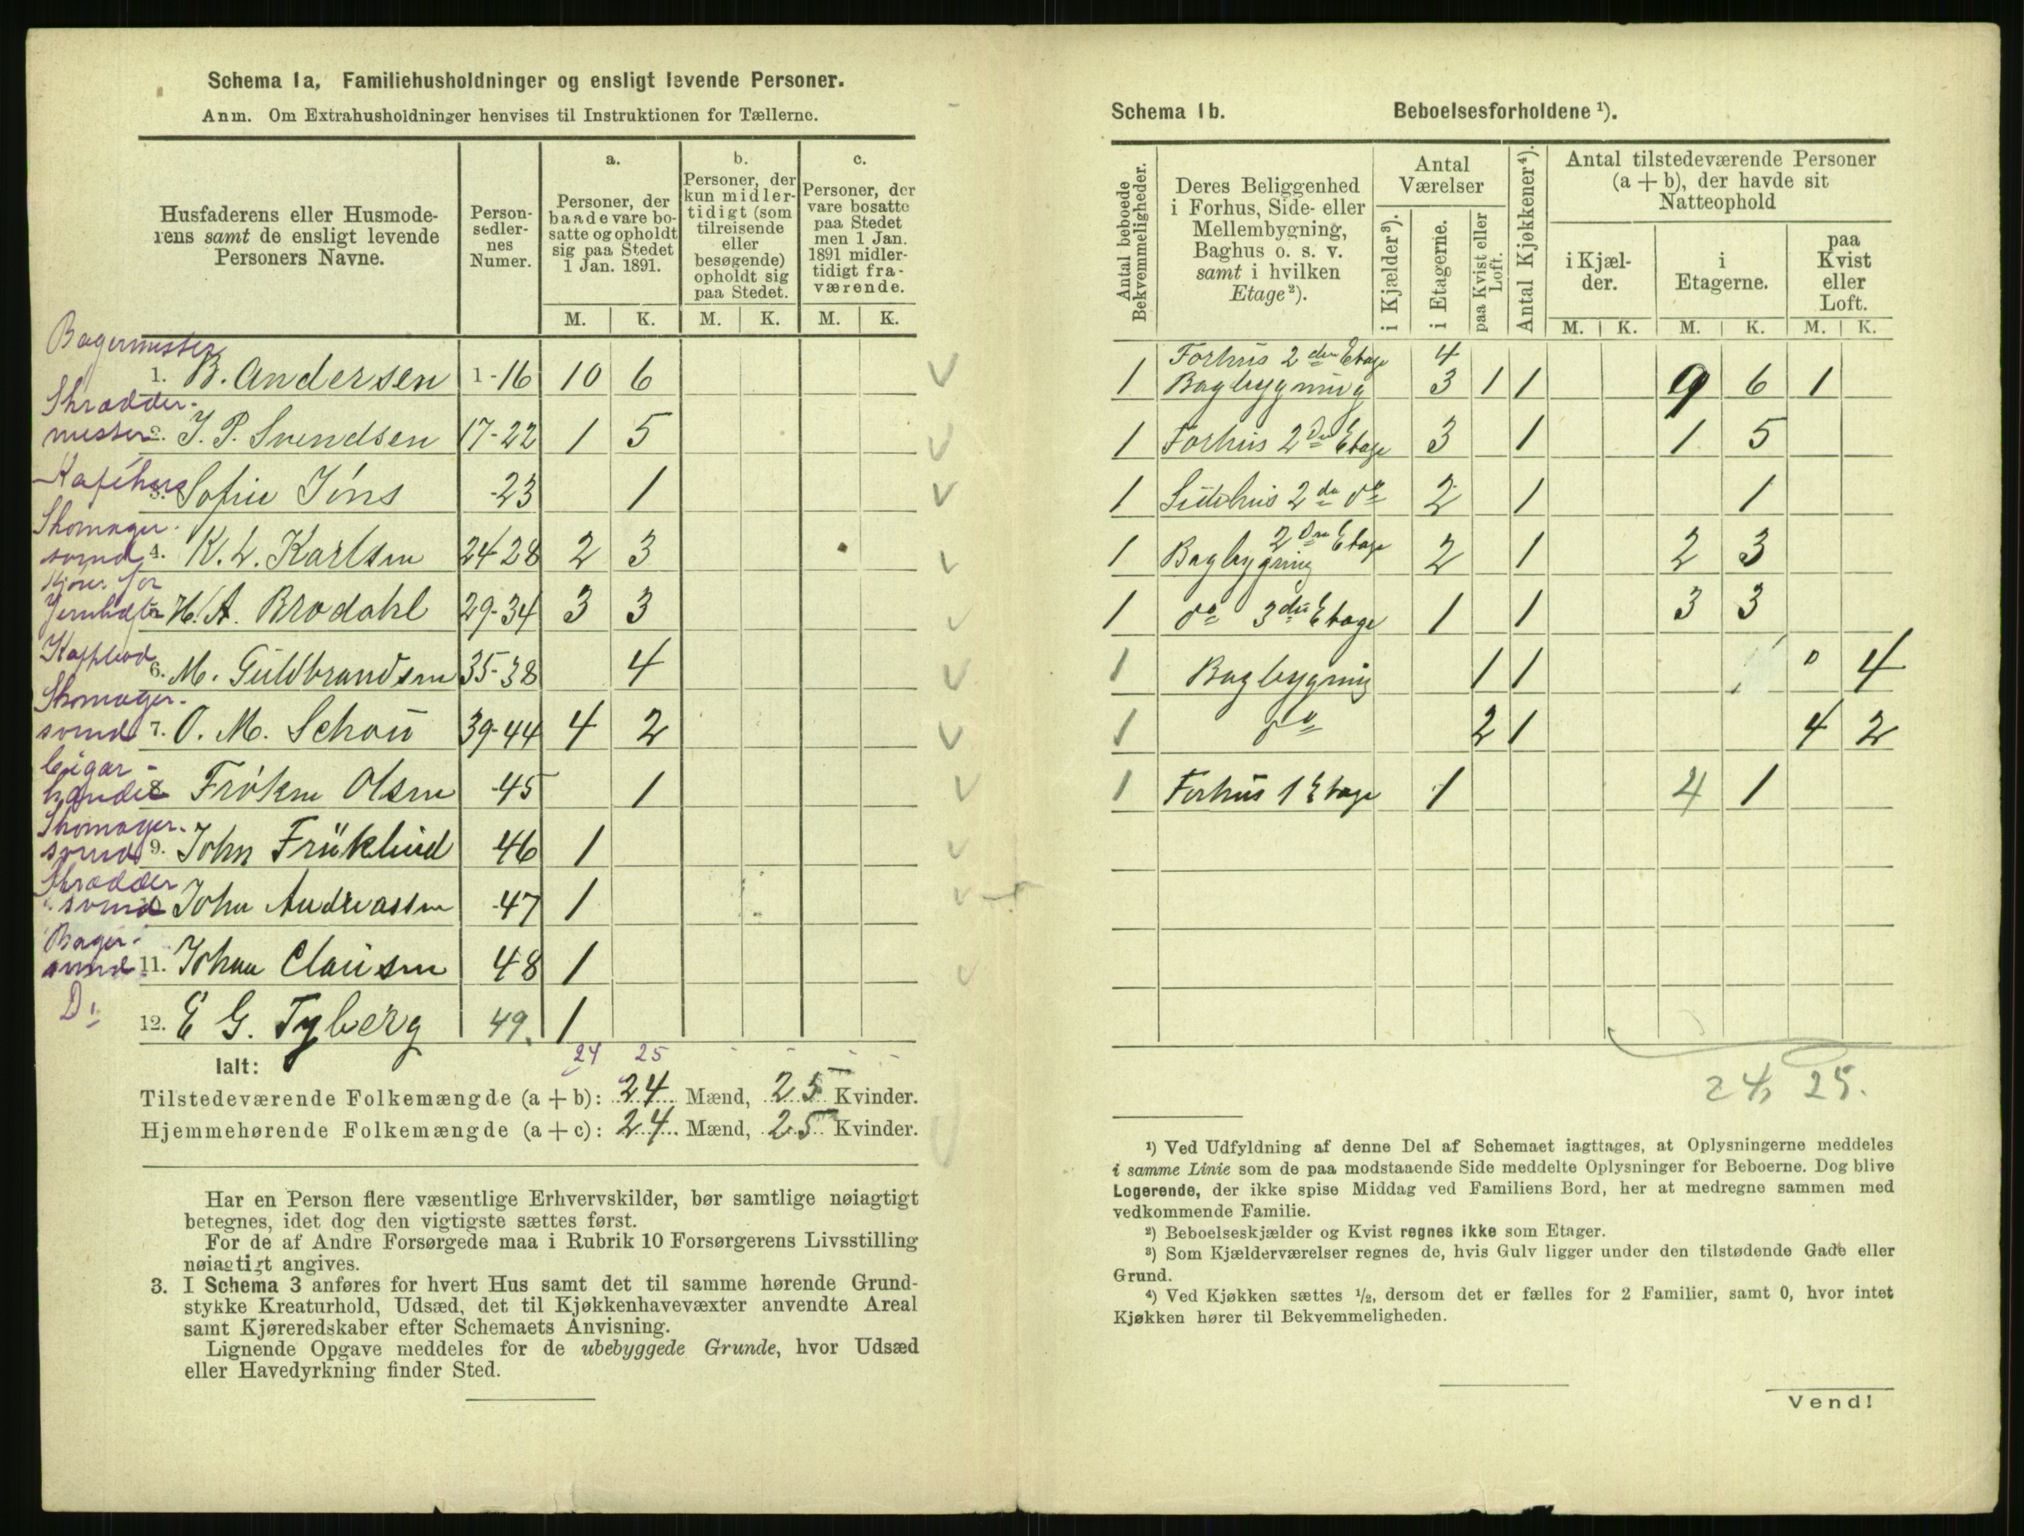 Schema 1a, Familiehusholdninger og ensligt levende Personer.
Anm. Om Extrahusholdninger henvises til Instruktionen for Tællerne.
Husfaderens eller Husmode-
rens samt de ensligt levende
Personers Navne.
Person-
sedler-
nes
Numer.
a.
Personer, der
baade vare bo-
satte og opholdt
sig paa Stedet
1 Jan. 1891.
b.
Personer, der
kun midler-
tidigt (som
tilreisende
eller
besøgende)
opholdt sig
paa Stedet.
c.
Personer, der
vare bosatte
paa Stedet
men 1 Jan.
1891 midler-
tidigt fra-
værende.
M. K. M. K. M. K.
Bagermester
1. B. Andersen 1-16 10 6
Skrædder-
mester 2. J. P. Svendsen 17-22 1 5
Kaféhus 3. Sofie Jöns -23 1
Skomager-
svend 4. K. L. Karlsen 24-28 2 3
Kjører for
H. A. Brodahl 29-34 3 3
6. M. Guldbrandsen 35-38 4
Skomager-
svend 7. O. M. Schou 39-44 4 2
Cigar-
handel 8. Frøken Olsen -45 1
Skomager-
svend 9. John Früklund -46 1
Skrædder
svend 10. John Andreassen -47 1
Bager-
svend 11. Johan Clausen -48 1
Do 12. E G. Tyberg 49. 1
Ialt: 24 25 - - - -
Tilstedeværende Folkemængde (a + b): 24 Mænd, 25 Kvinder.
Hjemmehørende Folkemængde (a + c): 24 Mænd, 25 Kvinder.
Har en Person flere væsentlige Erhvervskilder, bør samtlige nøiagtigt
betegnes, idet dog den vigtigste sættes først.
For de af Andre Forsørgede maa i Rubrik 10 Forsørgerens Livsstilling
nøiagtigt angives.
3. I Schema 3 anføres for hvert Hus samt det til samme hørende Grund-
stykke Kreaturhold, Udsæd, det til Kjøkkenhavevæxter anvendte Areal
samt Kjøreredskaber efter Schemaets Anvisning.
Lignende Opgave meddeles for de ubebyggede Grunde, hvor Udsæd
eller Havedyrkning finder Sted.
Schema 1b. Beboelsesforholdene ¹).
Antal beboede
Bekvemmeligheder.
Deres Beliggenhed
i Forhus, Side- eller
Mellembygning,
Baghus o. s. v.
samt i hvilken
Etage²).
Antal
Værelser
i Kjælder³).
i Etagerne.
paa Kvist eller
Loft.
Antal Kjøkkener⁴).
Antal tilstedeværende Personer
(a + b), der havde sit
Natteophold
i Kjæl-
der.
i
Etagerne.
paa
Kvist
eller
Loft.
M. K. M. K. M. K.
Forhus 2den Etage 4
1 Bagbygning 3 1 1 9 6 1
1 Forhus 2den Etage 3 1 1 5
1 Sidehus 2de do 2 1 1
2den Etage
1 Bagbygning 2 1 2 3
1 do 3die Etage 1 1 3 3
1 Bagbygning 1 1 0 4
1 do 2 1 4 2
1 Forhus 1 Etage 1 4 1
24, 25.
¹) Ved Udfyldning af denne Del af Schemaet iagttages, at Oplysningerne meddeles
i samme Linie som de paa modstaaende Side meddelte Oplysninger for Beboerne. Dog blive
Logerende, der ikke spise Middag ved Familiens Bord, her at medregne sammen med
vedkommende Familie.
²) Beboelseskjælder og Kvist regnes ikke som Etager.
³) Som Kjælderværelser regnes de, hvis Gulv ligger under den tilstødende Gade eller
Grund.
⁴) Ved Kjøkken sættes ½, dersom det er fælles for 2 Familier, samt 0, hvor intet
Kjøkken hører til Bekvemmeligheden.
Vend!